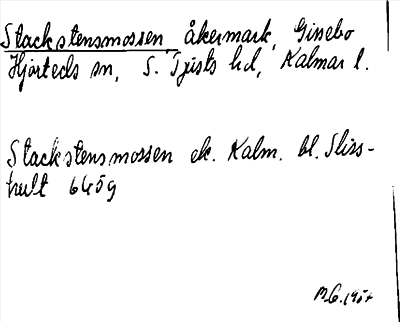 Stackstensmossen, åkermark, Ginsebo
Hjorteds sn, S. Tjusts hd, Kalmar l.
Stackstensmossen ek. Kalm. bl. Sliss-
hult 6459